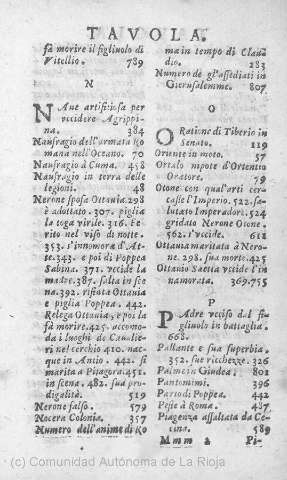 TAVOLA.
fà morire il figliuolo di
Vitellio. 789
N
NAue artifitiosa per
vccidere Agrippi-
na. 384
Naufragio dell'armata Ro
mana nell'Oceano. 70
Naufragio à Cuma. 458
Naufragio in terra delle
legioni. 48
Nerone sposa Ottauia. 298
è adottato. 307. piglia
la toga virile. 316. fe-
rito nel viso di notte.
353. s'innamora d'At-
te. 343. e poi di Poppea
Sabina. 371. vccide la
madre. 387. salta in sce
na. 392. rifiuta Ottauia
e piglia Poppea. 442.
Relega Ottauia, e poi la
fà morire. 425. accomo-
da i luoghi de Caualie-
ri nel cerchio 410. nac-
que in Antio. 442. si
marita a Pitagora. 451.
in scena. 482. sua pro-
digalità. 519
Nerone falso. 579
Nocera Colonia. 357
Numero dell'anime di Ro
ma in tempo di Clau
dio. 283
Numero de gl'assediati in
Gierusalemme. 807
O
ORatione di Tiberio in
Senato. 119
Oriente in moto. 57
Ortalo nipote d'Ortensio
Oratore. 79
Otone con qual'arti cer-
casse l'Imperio. 522. sa-
lutato Imperadore. 524
gridato Nerone Otone
562. s'vccide. 611
Ottauia maritata à Nero-
ne. 298. sua morte. 425
Ottauio Sagitta vccide l'in
namorata. 369.755
P
PAdre vcciso dal fi
gliuolo in battaglia.
668.
Pallante e sua superbia.
352. sue ricchezze. 326
Palme in Giudea. 801
Pantomimi. 396
Parto di Poppea. 442
Peste à Roma. 487
Piagenza assaltata da Ce-
cina. 589
Mmm 2 Pi-
(c) Comunidad Autónoma de La Rioja